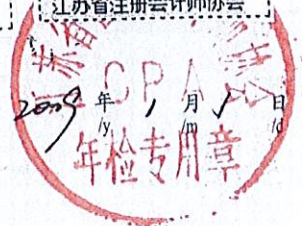 江苏省注册会计师协会
CPA
2009 年 1 月 1 日
/y /m /d
年检专用章